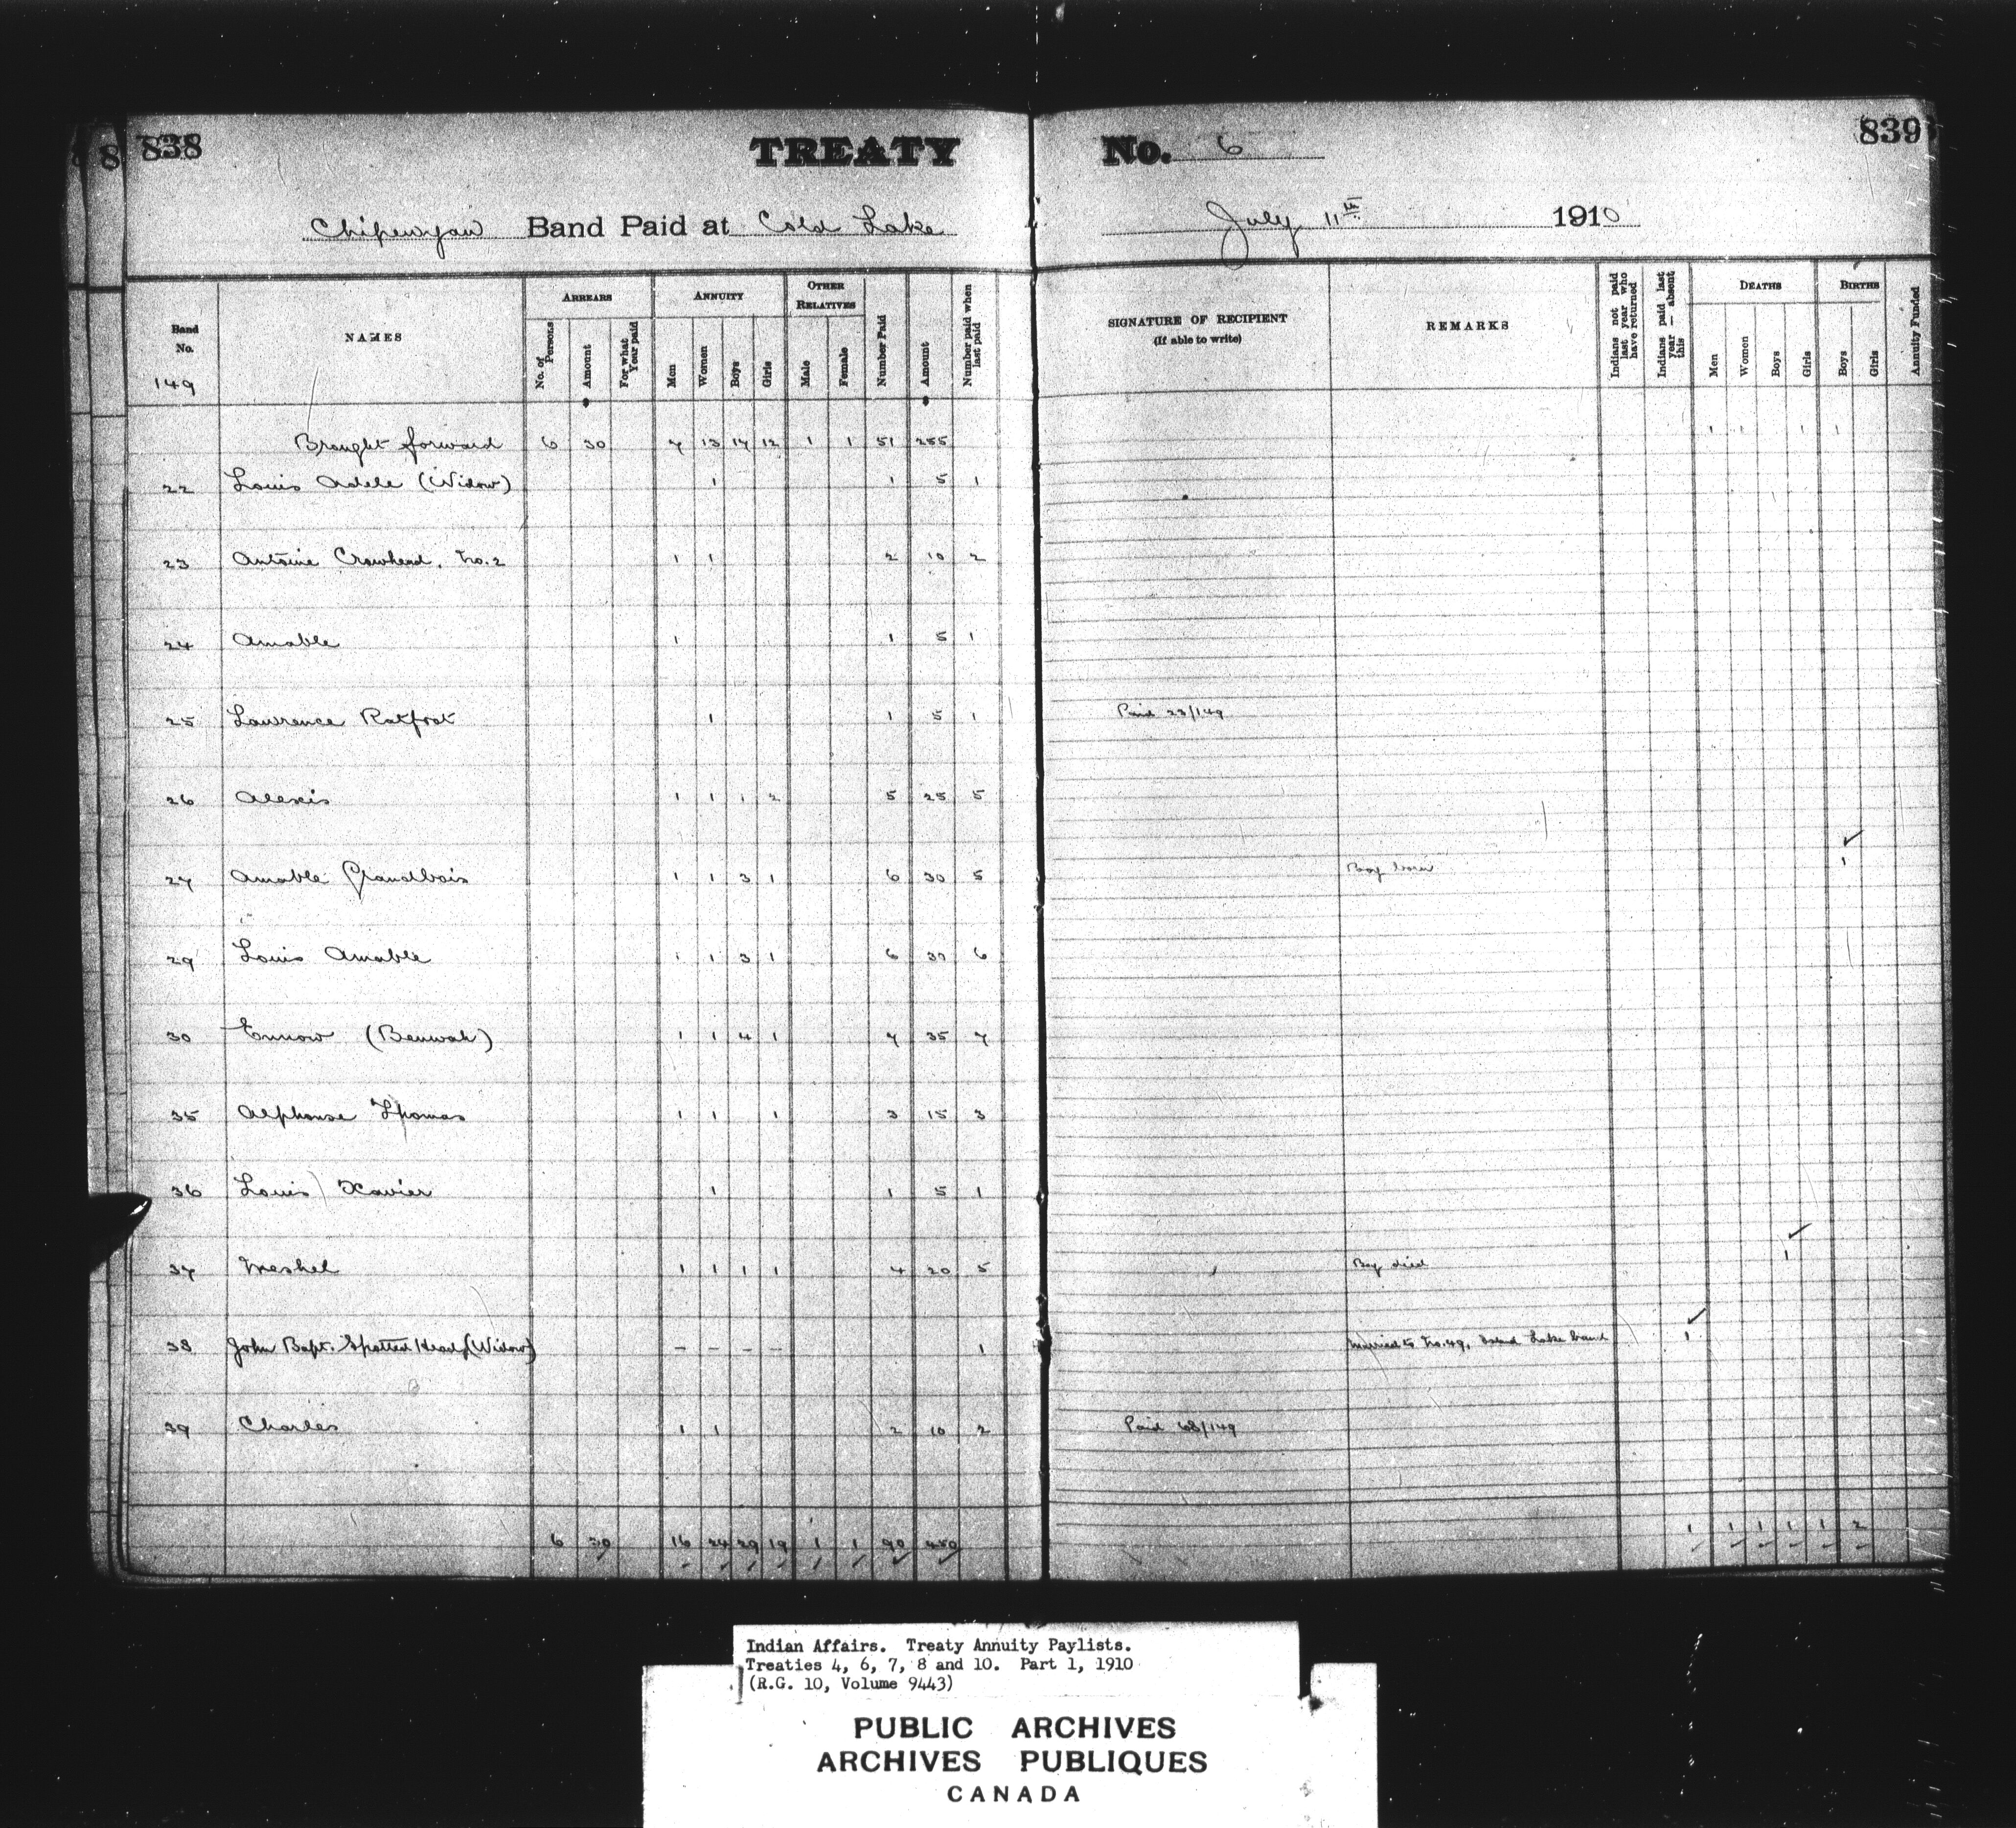 838 TREATY No. 6 839
Chipewyan Band Paid at Cold Lake July 11th 1910
Band No. 149 NAMES ARREARS No. of Persons Amount For what Year paid ANNUITY Men Women Boys Girls OTHER RELATIVES Male Female Number Paid Amount Number paid when last paid SIGNATURE OF RECIPIENT (If able to write) REMARKS Indians not paid last year who have returned Indians paid last year — absent this DEATHS Men Women Boys Girls BIRTHS Boys Girls Annuity Funded
Brought forward 6 30 7 13 14 12 1 1 51 255 1 1 1 1
22 Louis Adele (Widow) 1 1 5 1
23 Antoine Crowhead. No. 2 1 1 2 10 2
24 Amable 1 1 5 1
25 Lawrence Ratfoot 1 1 5 1 Paid 23/149
26 Alexis 1 1 1 2 5 25 5
27 Amable Grandbois 1 1 3 1 6 30 5 Boy born 1
29 Louis Amable 1 1 3 1 6 30 6
30 Ennow (Benwah) 1 1 4 1 7 35 7
35 Alphonse Thomas 1 1 1 3 15 3
36 Louis Xavier 1 1 5 1
37 Meshel 1 1 1 1 4 20 5 Boy died 1
38 John Bapt. Spotted Head (Widow) - - - - 1 Married to No. 49, Lake band 1
39 Charles 1 1 2 10 2 Paid 68/149
6 30 16 24 29 19 1 1 90 450 1 1 1 1 1 2
Indian Affairs. Treaty Annuity Paylists.
Treaties 4, 6, 7, 8 and 10. Part 1, 1910
(R.G. 10, Volume 9443)
PUBLIC ARCHIVES
ARCHIVES PUBLIQUES
CANADA